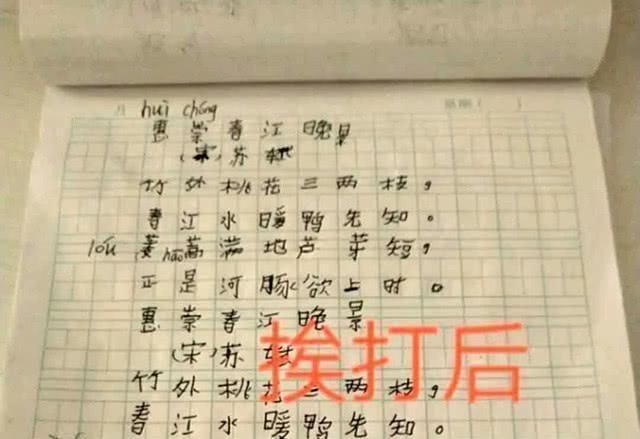 月 星期( )
huì chóng
惠崇春江晚景
(宋)苏轼
竹外桃花三两枝，
春江水暖鸭先知。
lóu 蒌 hāo 蒿满地芦芽短，
正是河豚欲上时。
惠崇春江晚景
(宋)苏轼
竹外桃花三两枝，
春江水暖鸭先知。
挨打后